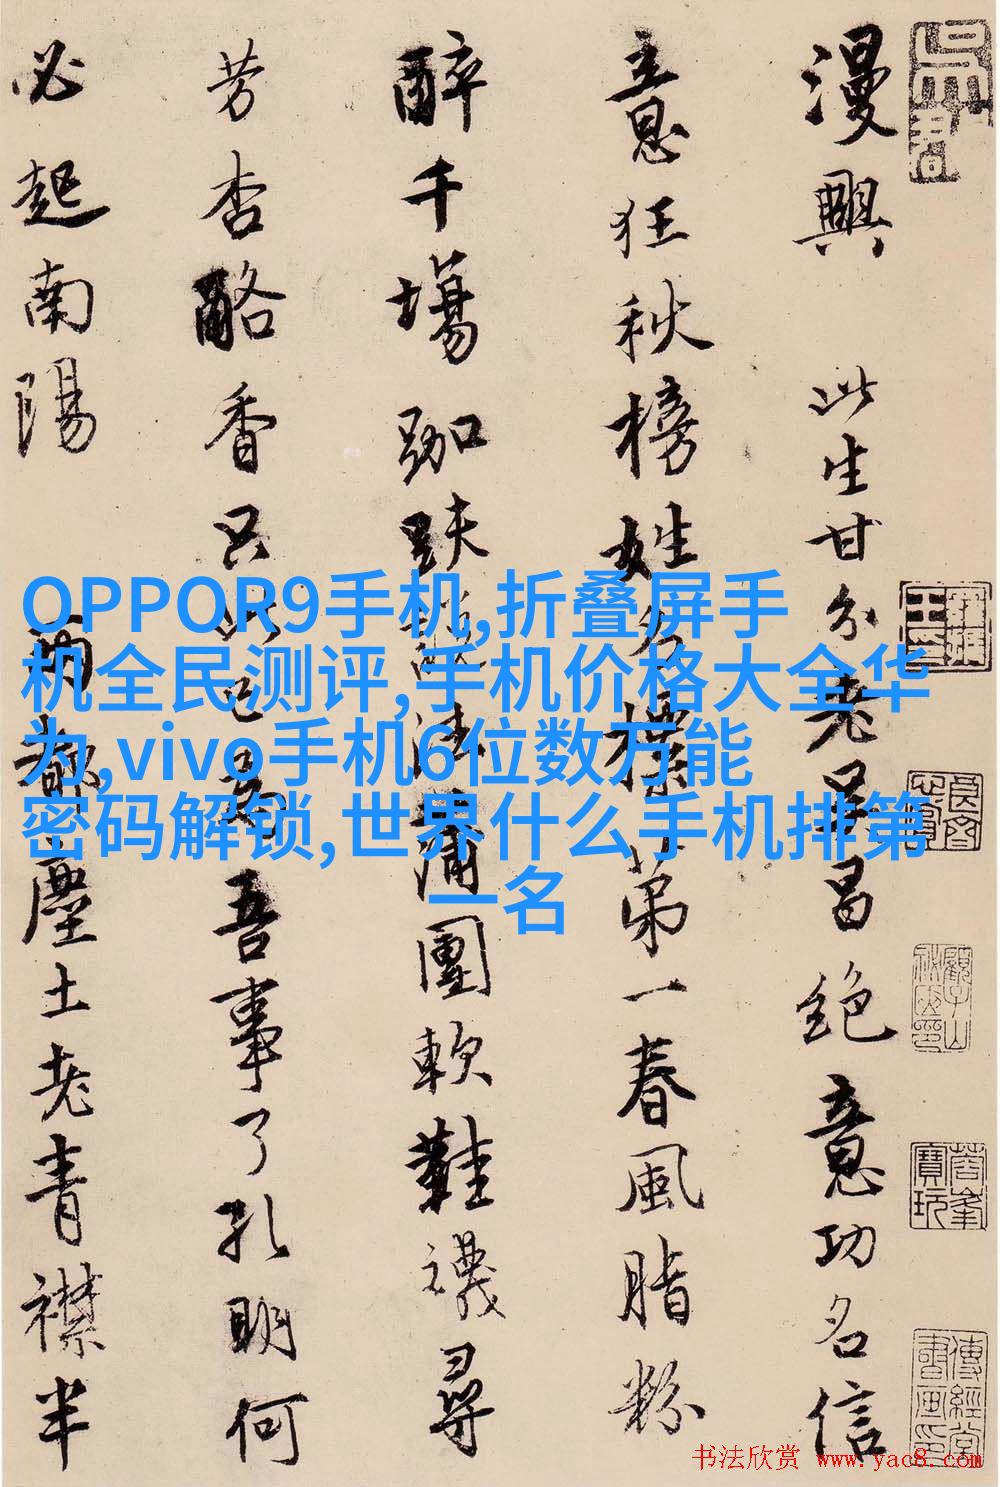 漫興 此生甘分老吳昌絕意功名信
意狂秋榜姓名標第一春風脂粉
醉千場跏趺說法蒲團軟鞋襪尋
芳杏酪香只此已為吾事了孔明何
必起南陽 兩都塵土老青襟半
OPPOR9手机,折叠屏手
机全民测评,手机价格大全华
为,vivo手机6位数万能
密码解锁,世界什么手机排第
一名
蓉峯寶玩
書法欣赏 www.yac8.com